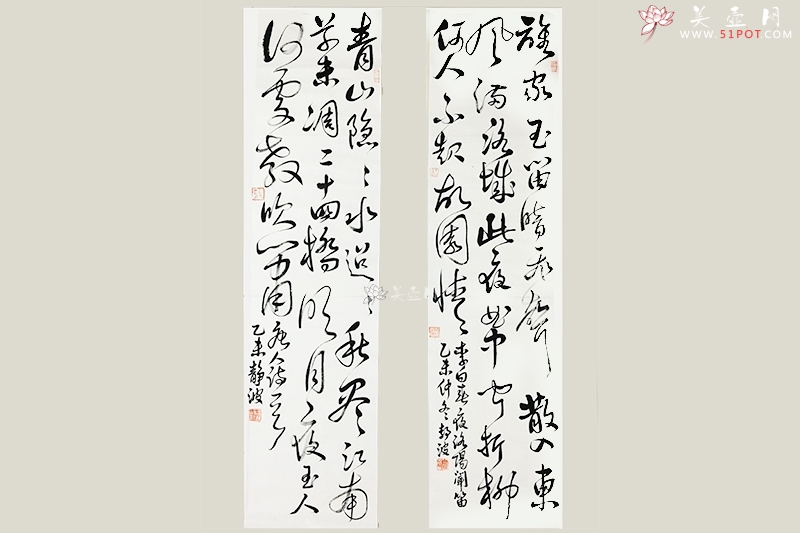 美壶网
WWW.51POT.COM
誰家玉笛暗飛聲散入東
風滿洛城此夜曲中聞折柳
何人不起故園情
李白春夜洛陽聞笛
乙未仲冬靜波
青山隱〻水迢〻秋盡江南
草未凋二十四橋明月夜玉人
何處教吹簫
唐人詩一首
乙未靜波
美壶网